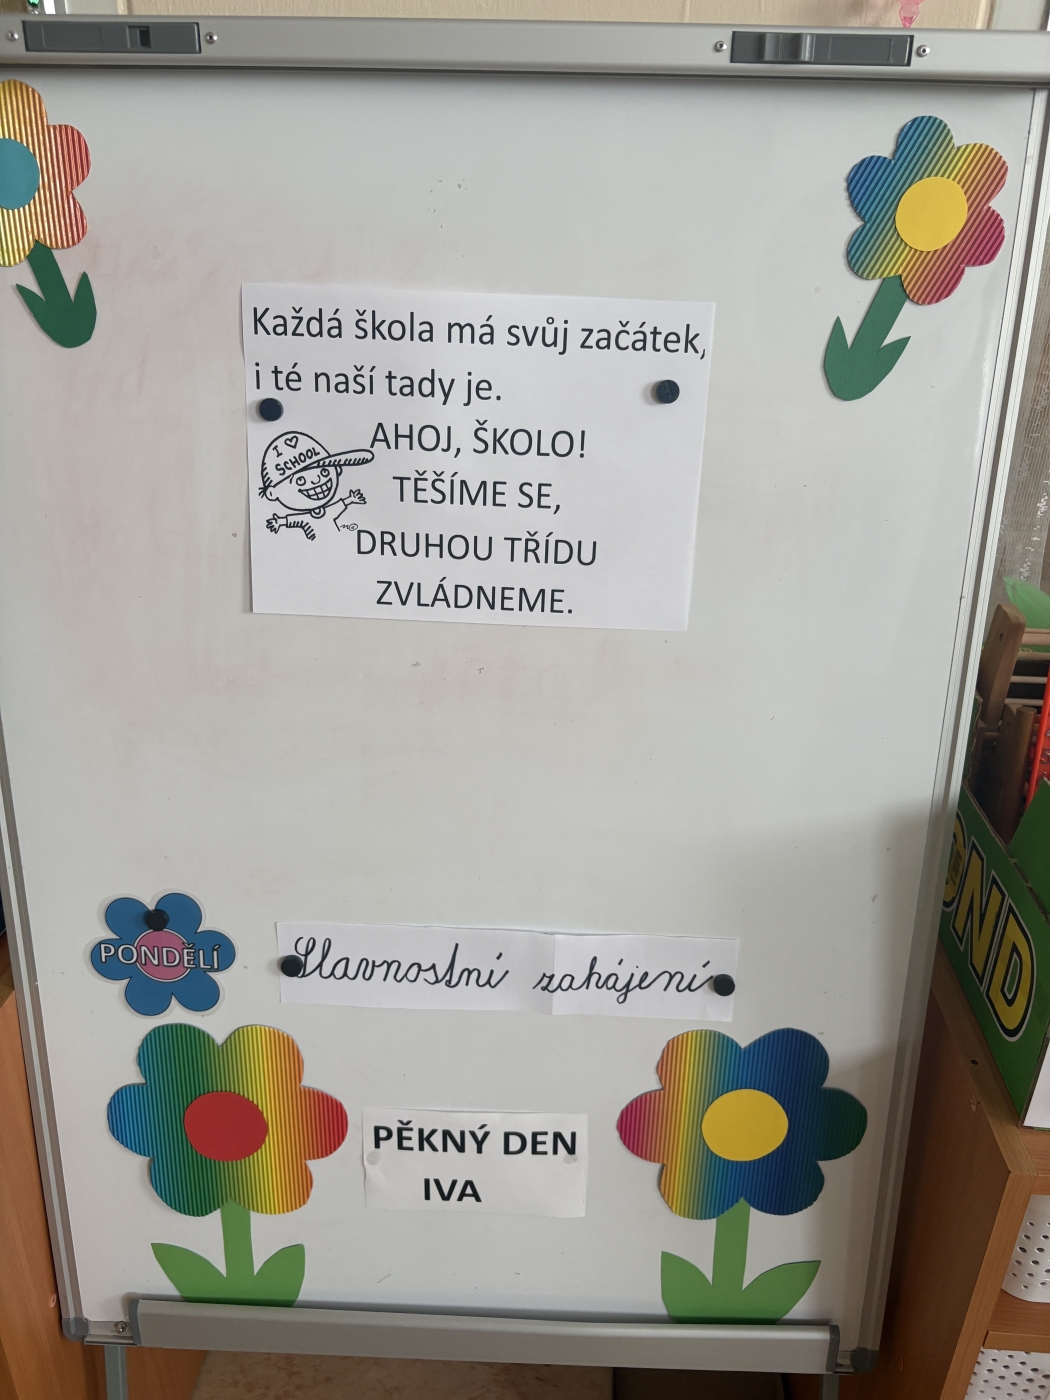 Každá škola má svůj začátek,
i té naší tady je.
AHOJ, ŠKOLO!
I ♡
SCHOOL
TĚŠÍME SE,
DRUHOU TŘÍDU
ZVLÁDNEME.
PONDĚLÍ
Slavnostní zahájení
PĚKNÝ DEN
IVA
OND